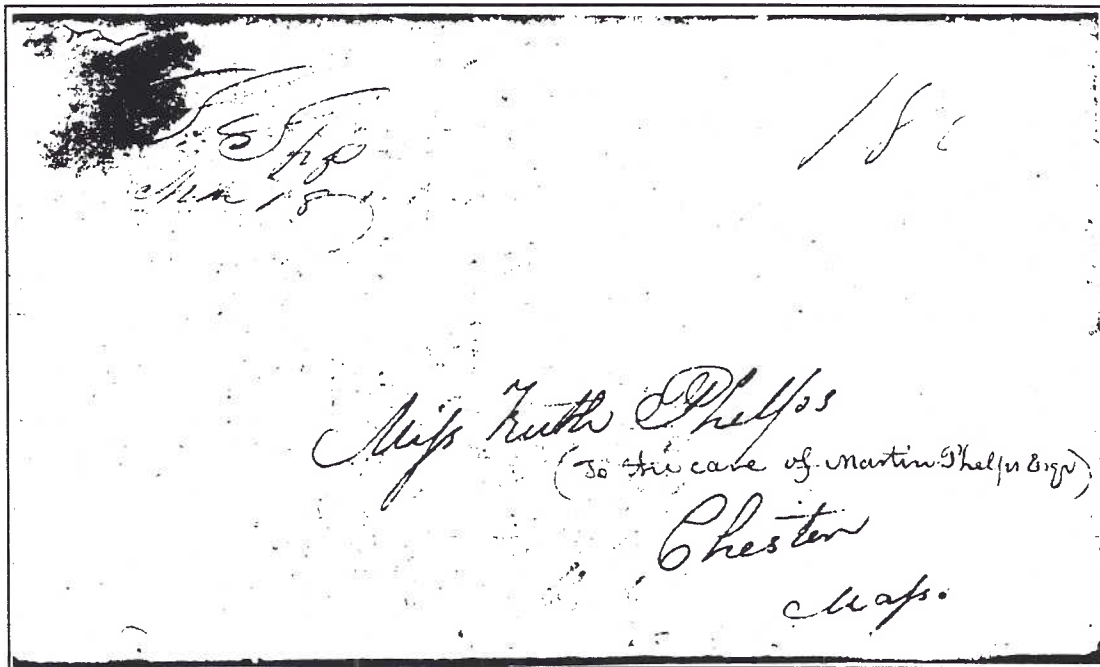 18
Mar 18
Miss Ruth Phelps
(To the care of Martin Phelps Esqr)
Chester
Mass.